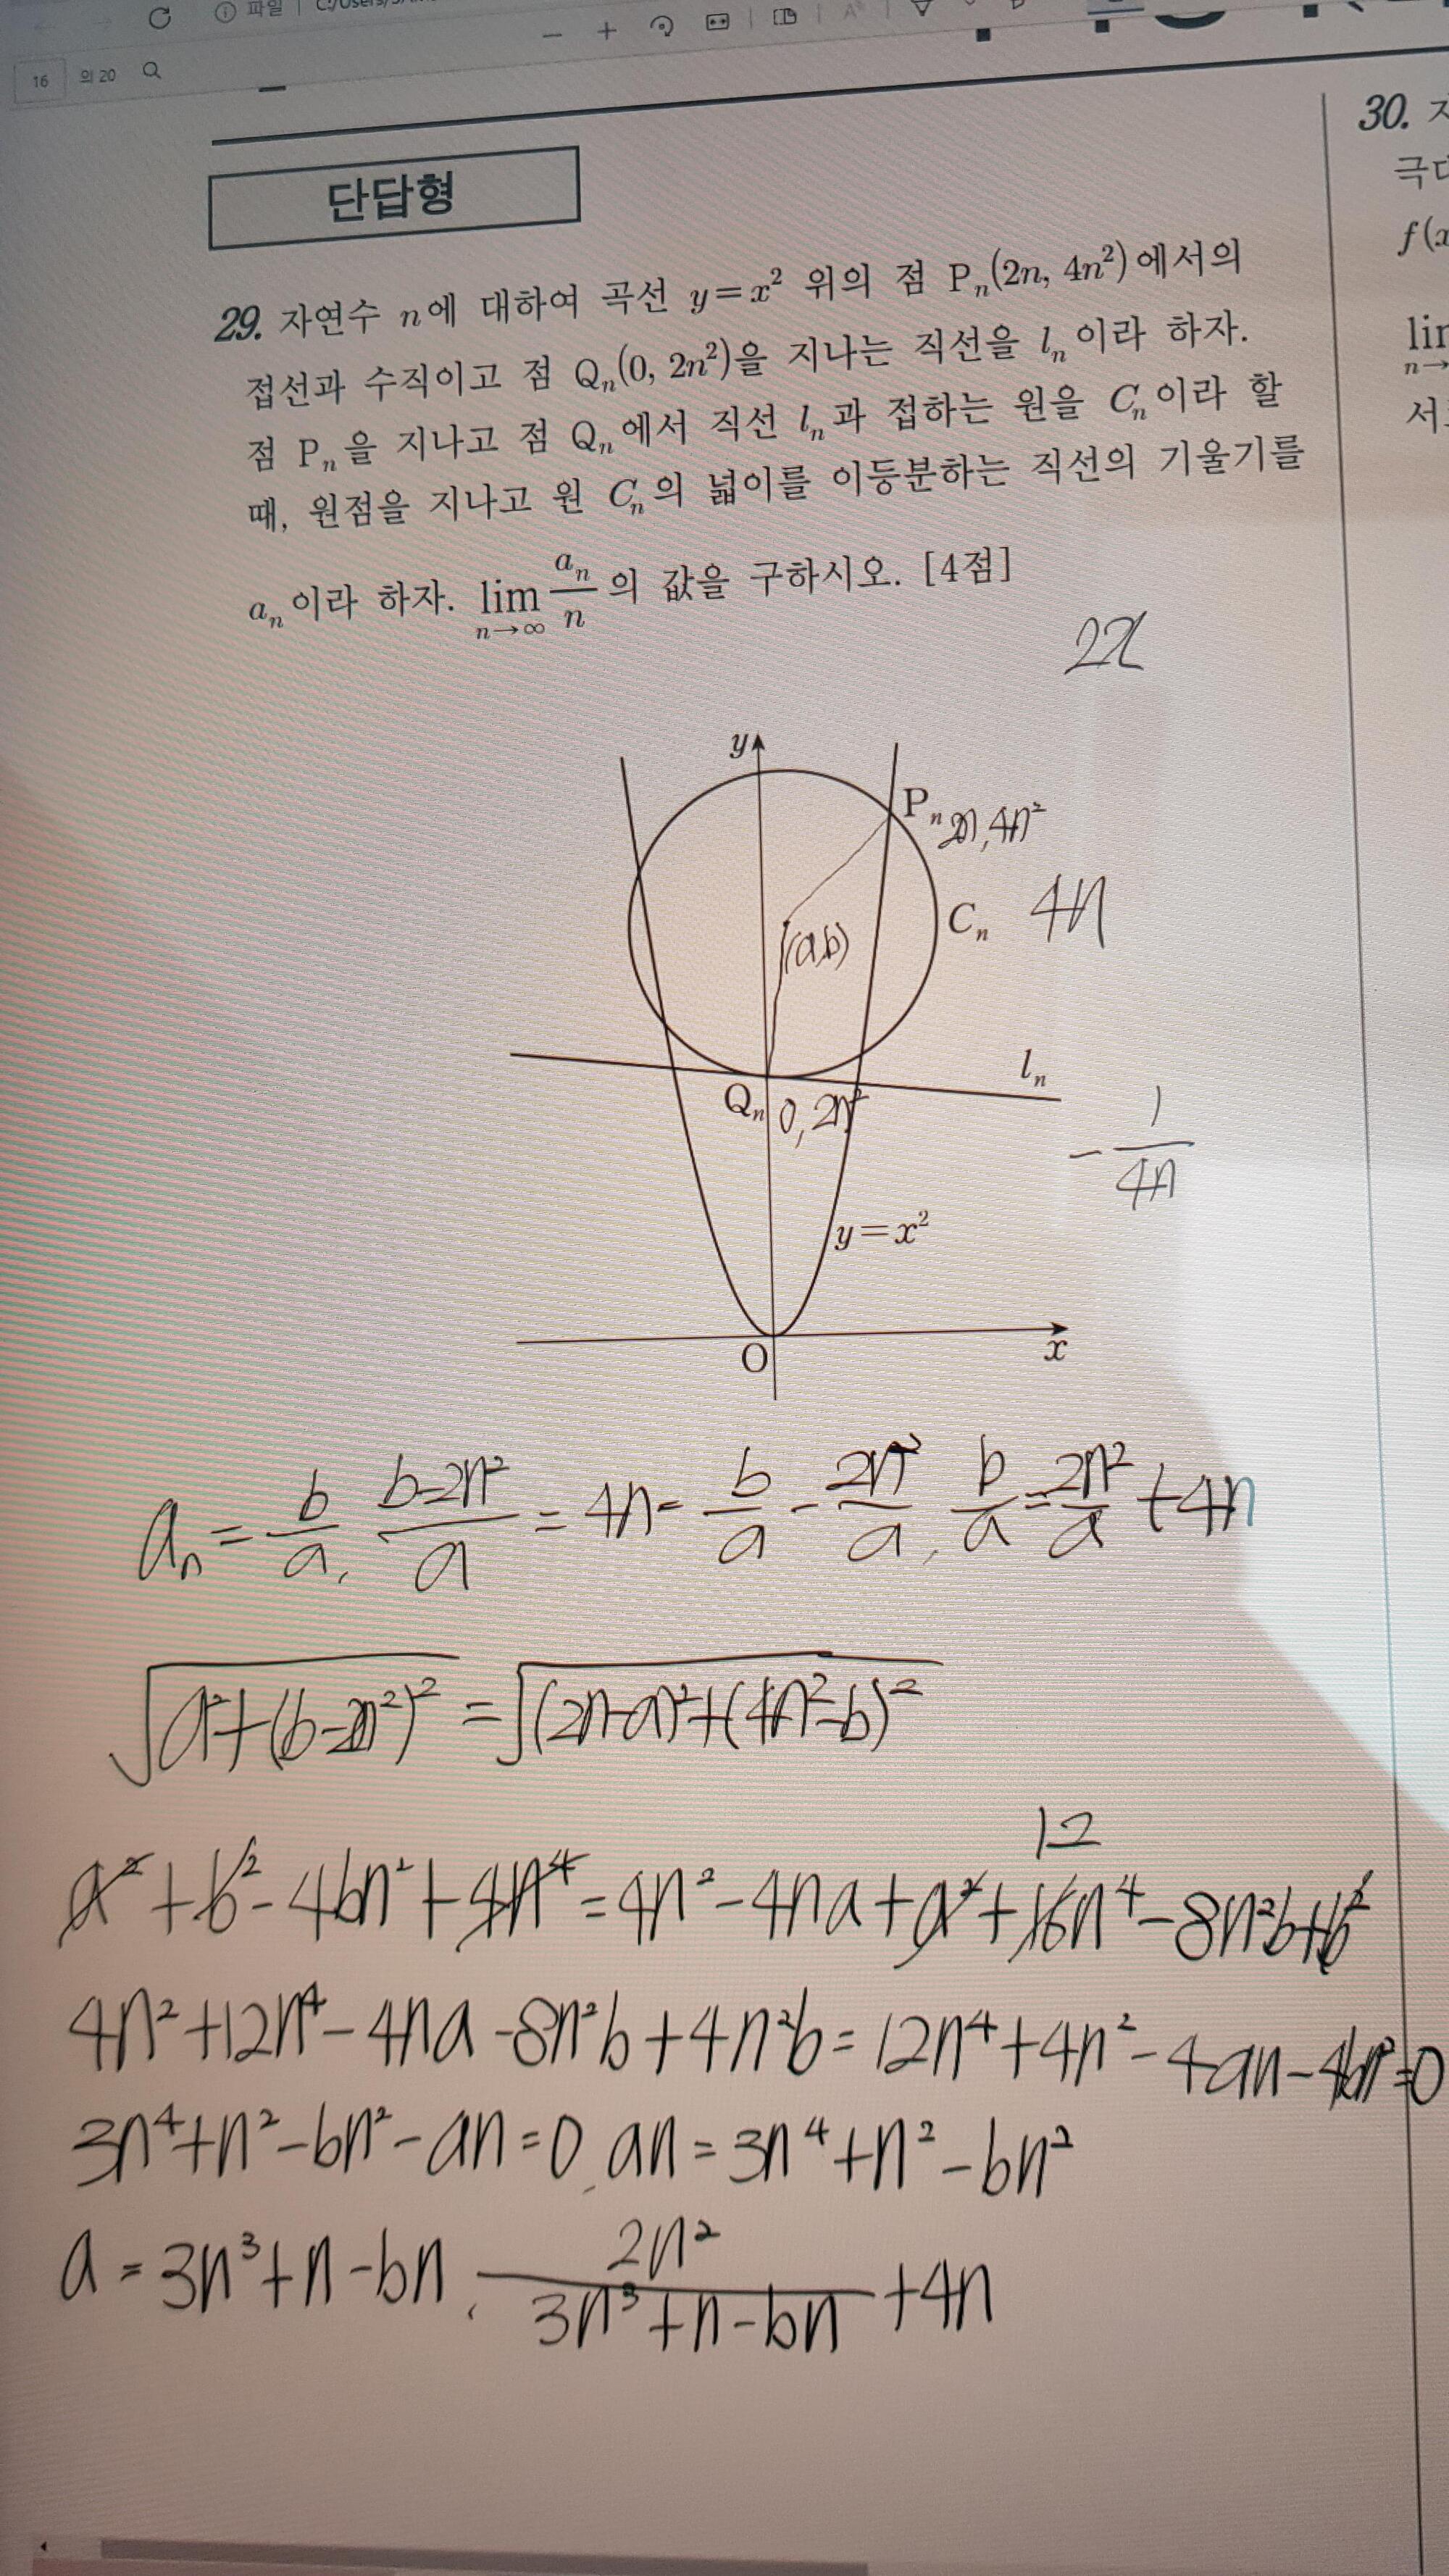 파일 C:/Users/
16 의 20
단답형
29. 자연수 n에 대하여 곡선 y=x² 위의 점 Pₙ(2n, 4n²)에서의
접선과 수직이고 점 Qₙ(0, 2n²)을 지나는 직선을 lₙ이라 하자.
점 Pₙ을 지나고 점 Qₙ에서 직선 lₙ과 접하는 원을 Cₙ이라 할
때, 원점을 지나고 원 Cₙ의 넓이를 이등분하는 직선의 기울기를
aₙ이라 하자. lim n→∞ aₙ/n 의 값을 구하시오. [4점]
2x
y
Pₙ 2n, 4n²
(a,b)
Cₙ 4n
lₙ
Qₙ 0, 2n²
-1/4n
y=x²
O x
aₙ = b/a, (b-2n²)/a = 4n = b/a - 2n²/a, b/a = 2n²/a + 4n
√(a²+(b-2n²)²) = √((2n-a)²+(4n²-b)²)
12
a²+b²-4bn²+4n⁴=4n²-4na+a²+16n⁴-8n²b+b²
4n²+12n⁴-4na-8n²b+4n²b=12n⁴+4n²-4an-4bn²=0
3n⁴+n²-bn²-an=0, an=3n⁴+n²-bn²
a=3n³+n-bn, 2n²/(3n³+n-bn) +4n
30.
극
f(x
lim
n→
서